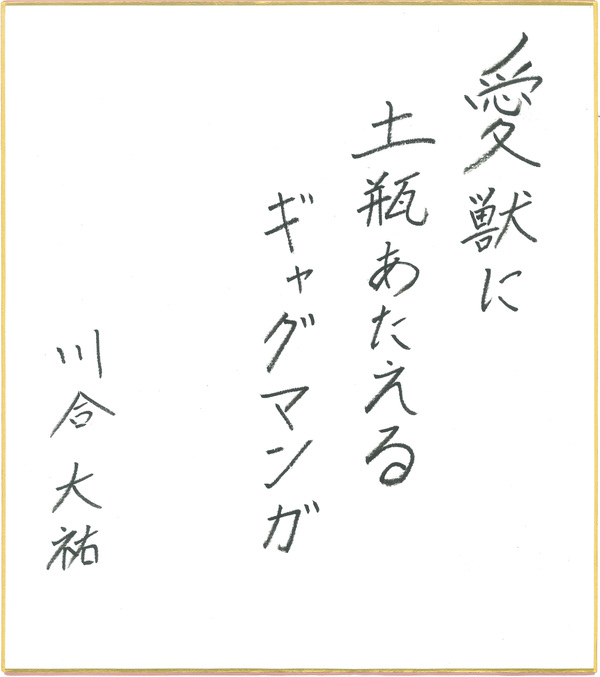 愛獣に
土瓶あたえる
ギャグマンガ
川合大祐